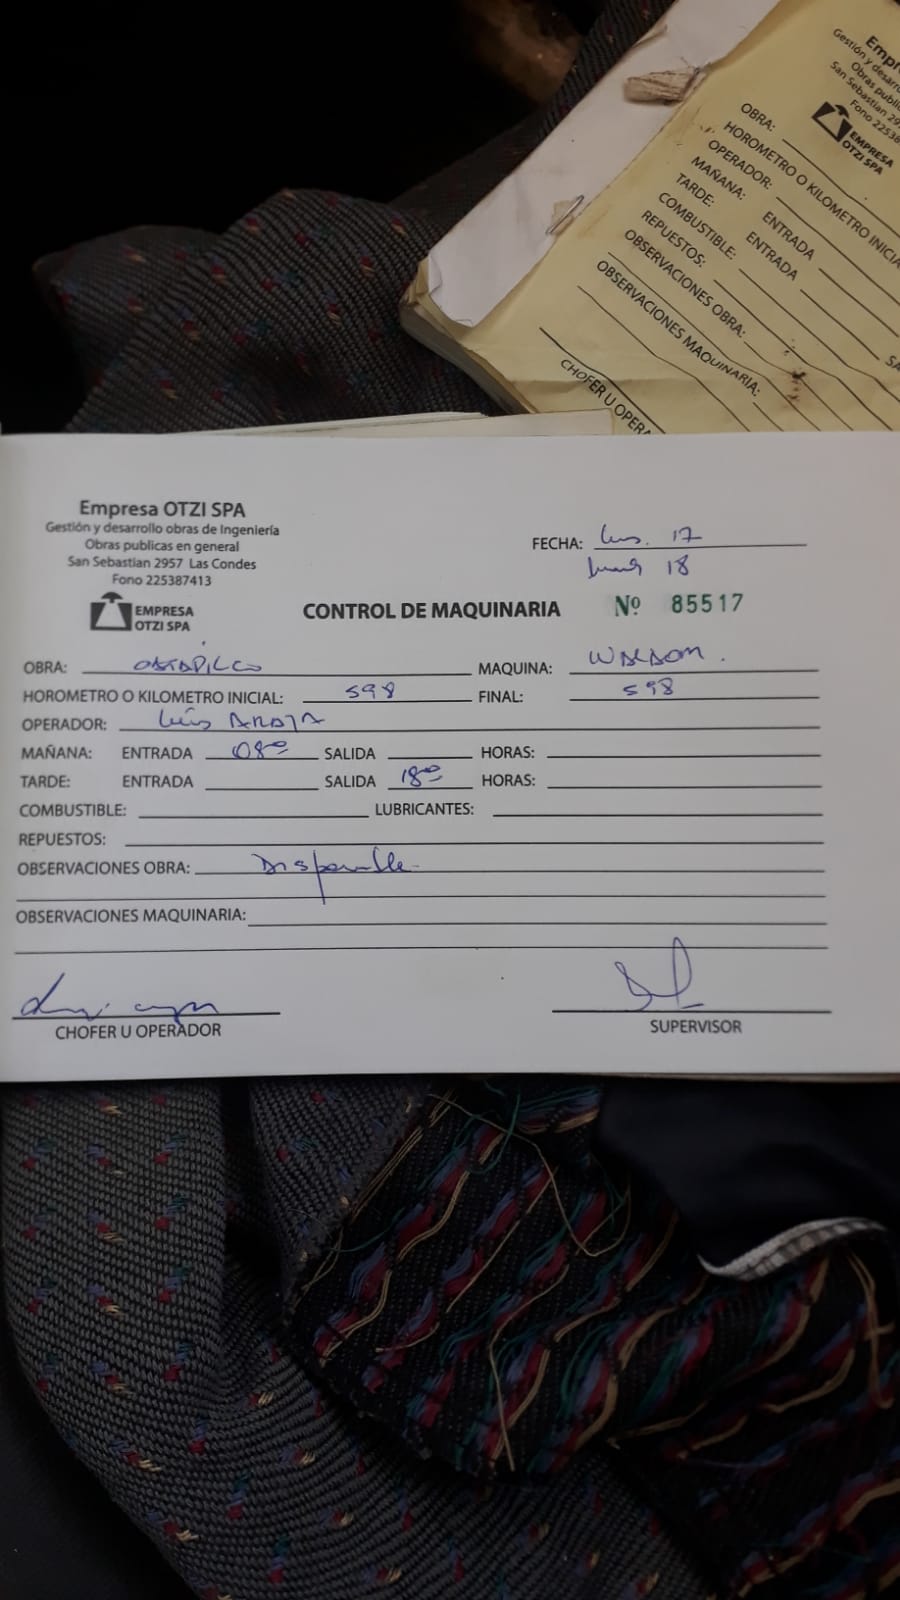 Empresa
Gestión y desarro
Obras publi
San Sebastian 29
Fono 22538
EMPRESA
OTZI SPA
OBRA:
HOROMETRO O KILOMETRO INICIA
OPERADOR:
MAÑANA: ENTRADA
TARDE: ENTRADA
COMBUSTIBLE:
REPUESTOS: SA
OBSERVACIONES OBRA:
OBSERVACIONES MAQUINARIA:
CHOFER U OPERA
Empresa OTZI SPA
Gestión y desarrollo obras de Ingeniería
Obras publicas en general
San Sebastian 2957 Las Condes
Fono 225387413
EMPRESA
OTZI SPA
FECHA: lun. 17
18
CONTROL DE MAQUINARIA Nº 85517
OBRA: MAQUINA: WALDOM.
HOROMETRO O KILOMETRO INICIAL: 598 FINAL: 598
OPERADOR: Luis ARAYA
MAÑANA: ENTRADA 08⁰⁰ SALIDA HORAS:
TARDE: ENTRADA SALIDA 18⁰⁰ HORAS:
COMBUSTIBLE: LUBRICANTES:
REPUESTOS:
OBSERVACIONES OBRA: Disponible
OBSERVACIONES MAQUINARIA:
CHOFER U OPERADOR SUPERVISOR